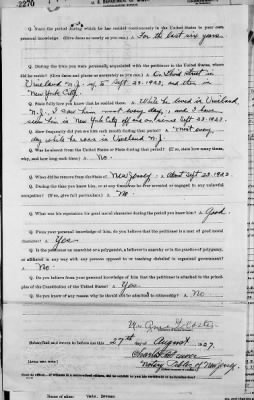 2270
Q. State the period during which he has resided continuously in the United States to your own
personal knowledge. (Give dates as nearly as you can.) A. For the last six years.
Q. During the time you were personally acquainted with the petitioner in the United States, where
did he reside? (Give dates and places as accurately as you can.) A. On Third Street in
Vineland N.J. up to Sept. 23. 1923, and then in
New York City.
Q. State fully how you know that he resided there. A. While he lived in Vineland
N.J., I saw him most every day, and I have
seen him in New York City off and on since Sept. 23. 1923.
Q. How frequently did you see him each month during that period? A. Most every
day while he was in Vineland N.J.
Q. Was he absent from the United States or State during that period? (If so, state how many times,
why, and how long each time.) A. No.
Q. When did he remove from the State of New Jersey? A. About Sept 23. 1923.
Q. During the time you knew him, or at any time
(If so, give full particulars.) A. No.
Q. What was his reputation for good moral character during the period you knew him? A. Good.
Q. From your personal knowledge of him, do you believe that the petitioner is a man of good moral
character? A. Yes
Q. Is the petitioner an anarchist or a polygamist, a believer in anarchy or in the practice of polygamy,
or affiliated in any way with any persons opposed to or teaching disbelief in organized government?
A. No
Q. Do you believe from your personal knowledge of him that the petitioner is attached to the principles
of the Constitution of the United States? A. Yes
Q. Do you know of any reason why he should not be admitted to citizenship? A. No
Subscribed and sworn to before me this 27th day of August, 1927.
Notary Public of New Jersey